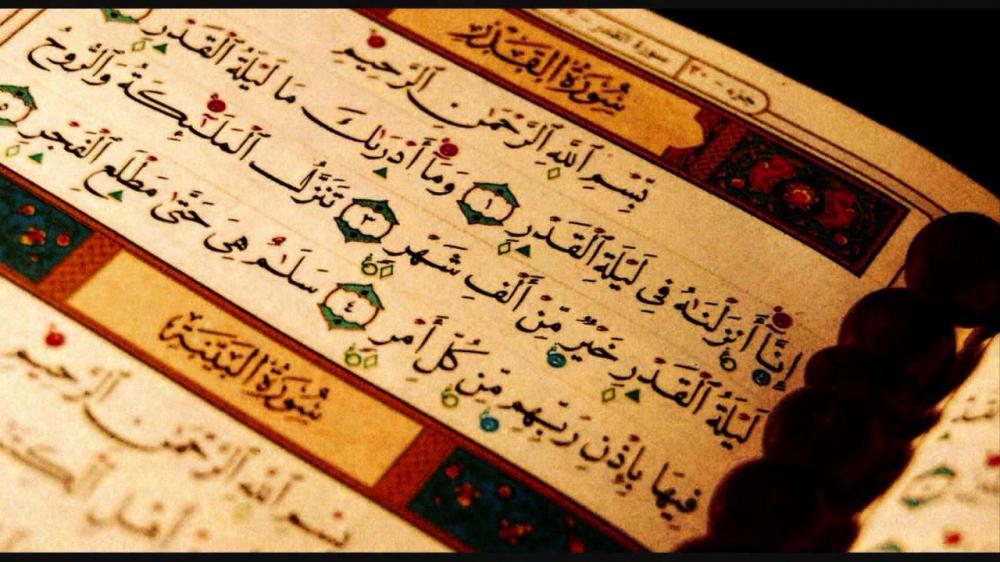 جزء - ٣٠ سورة القدر
سُورَةُ القَدْرِ
بِسْمِ ٱللَّهِ ٱلرَّحْمَٰنِ ٱلرَّحِيمِ
إِنَّآ أَنزَلْنَٰهُ فِي لَيْلَةِ ٱلْقَدْرِ ١ وَمَآ أَدْرَىٰكَ مَا لَيْلَةُ ٱلْقَدْرِ
لَيْلَةُ ٱلْقَدْرِ خَيْرٌ مِّنْ أَلْفِ شَهْرٍ ٣ تَنَزَّلُ ٱلْمَلَٰٓئِكَةُ وَٱلرُّوحُ
فِيهَا بِإِذْنِ رَبِّهِم مِّن كُلِّ أَمْرٍ ٤ سَلَٰمٌ هِيَ حَتَّىٰ مَطْلَعِ ٱلْفَجْرِ ٥
سُورَةُ البَيِّنَةِ
بِسْمِ ٱللَّهِ ٱلرَّحْمَٰنِ ٱلرَّحِيمِ